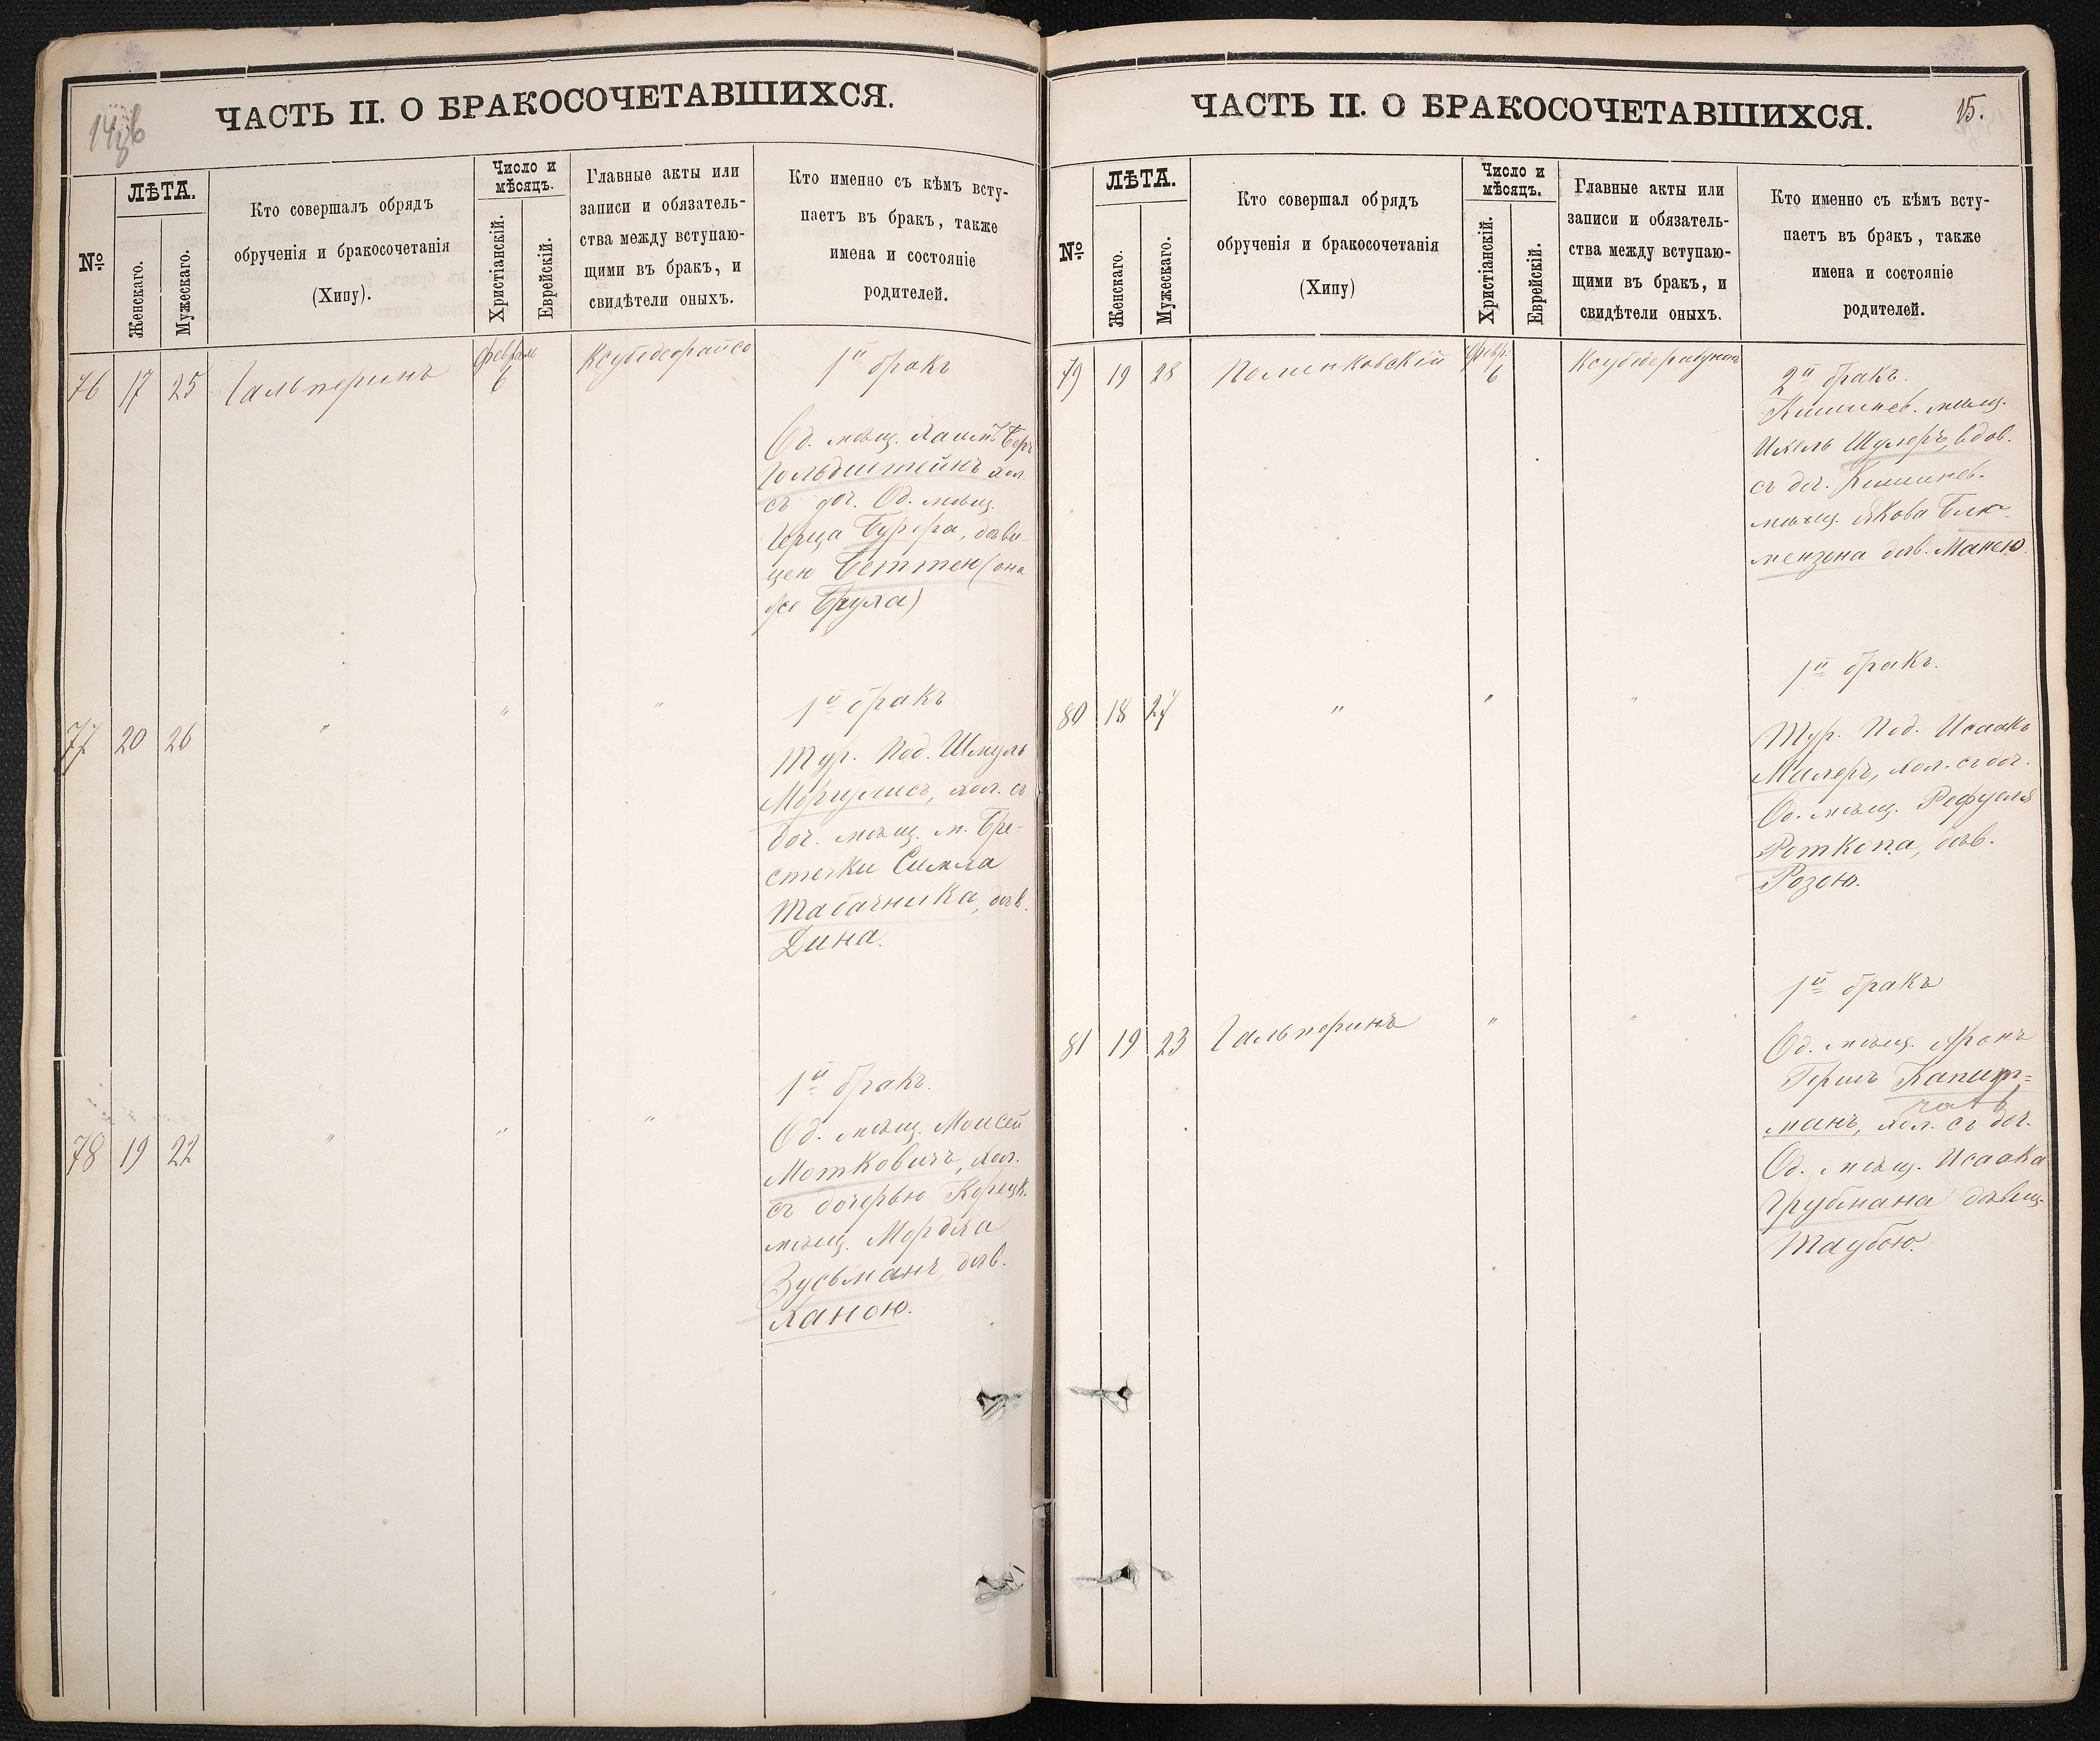 ЧАСТЬ II. О БРАКОСОЧЕТАВШИХСЯ.
№
ЛѢТА.
Женскаго.
Мужескаго.
Кто совершалъ обрядъ
обрученія и бракосочетанія
(Хипу).
Число и
мѣсяцъ.
Христіанскій.
Еврейскій.
Главные акты или
записи и обязатель-
ства между вступаю-
щими въ бракъ, и
свидѣтели оныхъ.
Кто именно съ кѣмъ всту-
паетъ въ бракъ, также
имена и состояніе
родителей.
76 17 25 Гальперинъ
6
1й бракъ
Од. мѣщ. Хаимъ Беръ
Гольдштейнъ хол.
съ доч. Од. мѣщ.
Герца дѣви-
цею Беттею (она
же Брула)
77 20 26 " " "
1й бракъ
Тур. Под. Шмуль
Моргулисъ, хол. съ
доч. мѣщ. м. Бре-
стечки
Табачника, дѣв.
Дина.
78 19 22 " " "
1й бракъ.
Од. мѣщ. Моисей
Мотковичъ, хол.
съ дочерью Корецк.
мѣщ. Мордха
Зусьманъ, дѣв.
Ханою.
ЧАСТЬ II. О БРАКОСОЧЕТАВШИХСЯ.
15.
№
ЛѢТА.
Женскаго.
Мужескаго.
Кто совершал обрядъ
обрученія и бракосочетанія
(Хипу)
Число и
мѣсяцъ.
Христіанскій.
Еврейскій.
Главные акты или
записи и обязатель-
ства между вступаю-
щими въ бракъ, и
свидѣтели оныхъ.
Кто именно съ кѣмъ всту-
паетъ въ бракъ, также
имена и состояніе
родителей.
79 19 28 Полинковскій Февр.
6
2й бракъ.
Кишинев. мѣщ.
Ихель Шулеръ, вдов.
съ доч. Кишинев.
мѣщ. Якова Блю-
мензона дѣв. Манею.
80 18 27 " " "
1й бракъ.
Тур. Под. Исаакъ
Малеръ, хол. съ доч.
Од. мѣщ. Рефуеля
Роткопа, дѣв.
Розою.
81 19 23 Гальперинъ " "
1й бракъ
Од. мѣщ. Аронъ
Гершъ
манъ, хол. съ доч.
Од. мѣщ. Исаака
Грубмана дѣвиц.
Таубою.